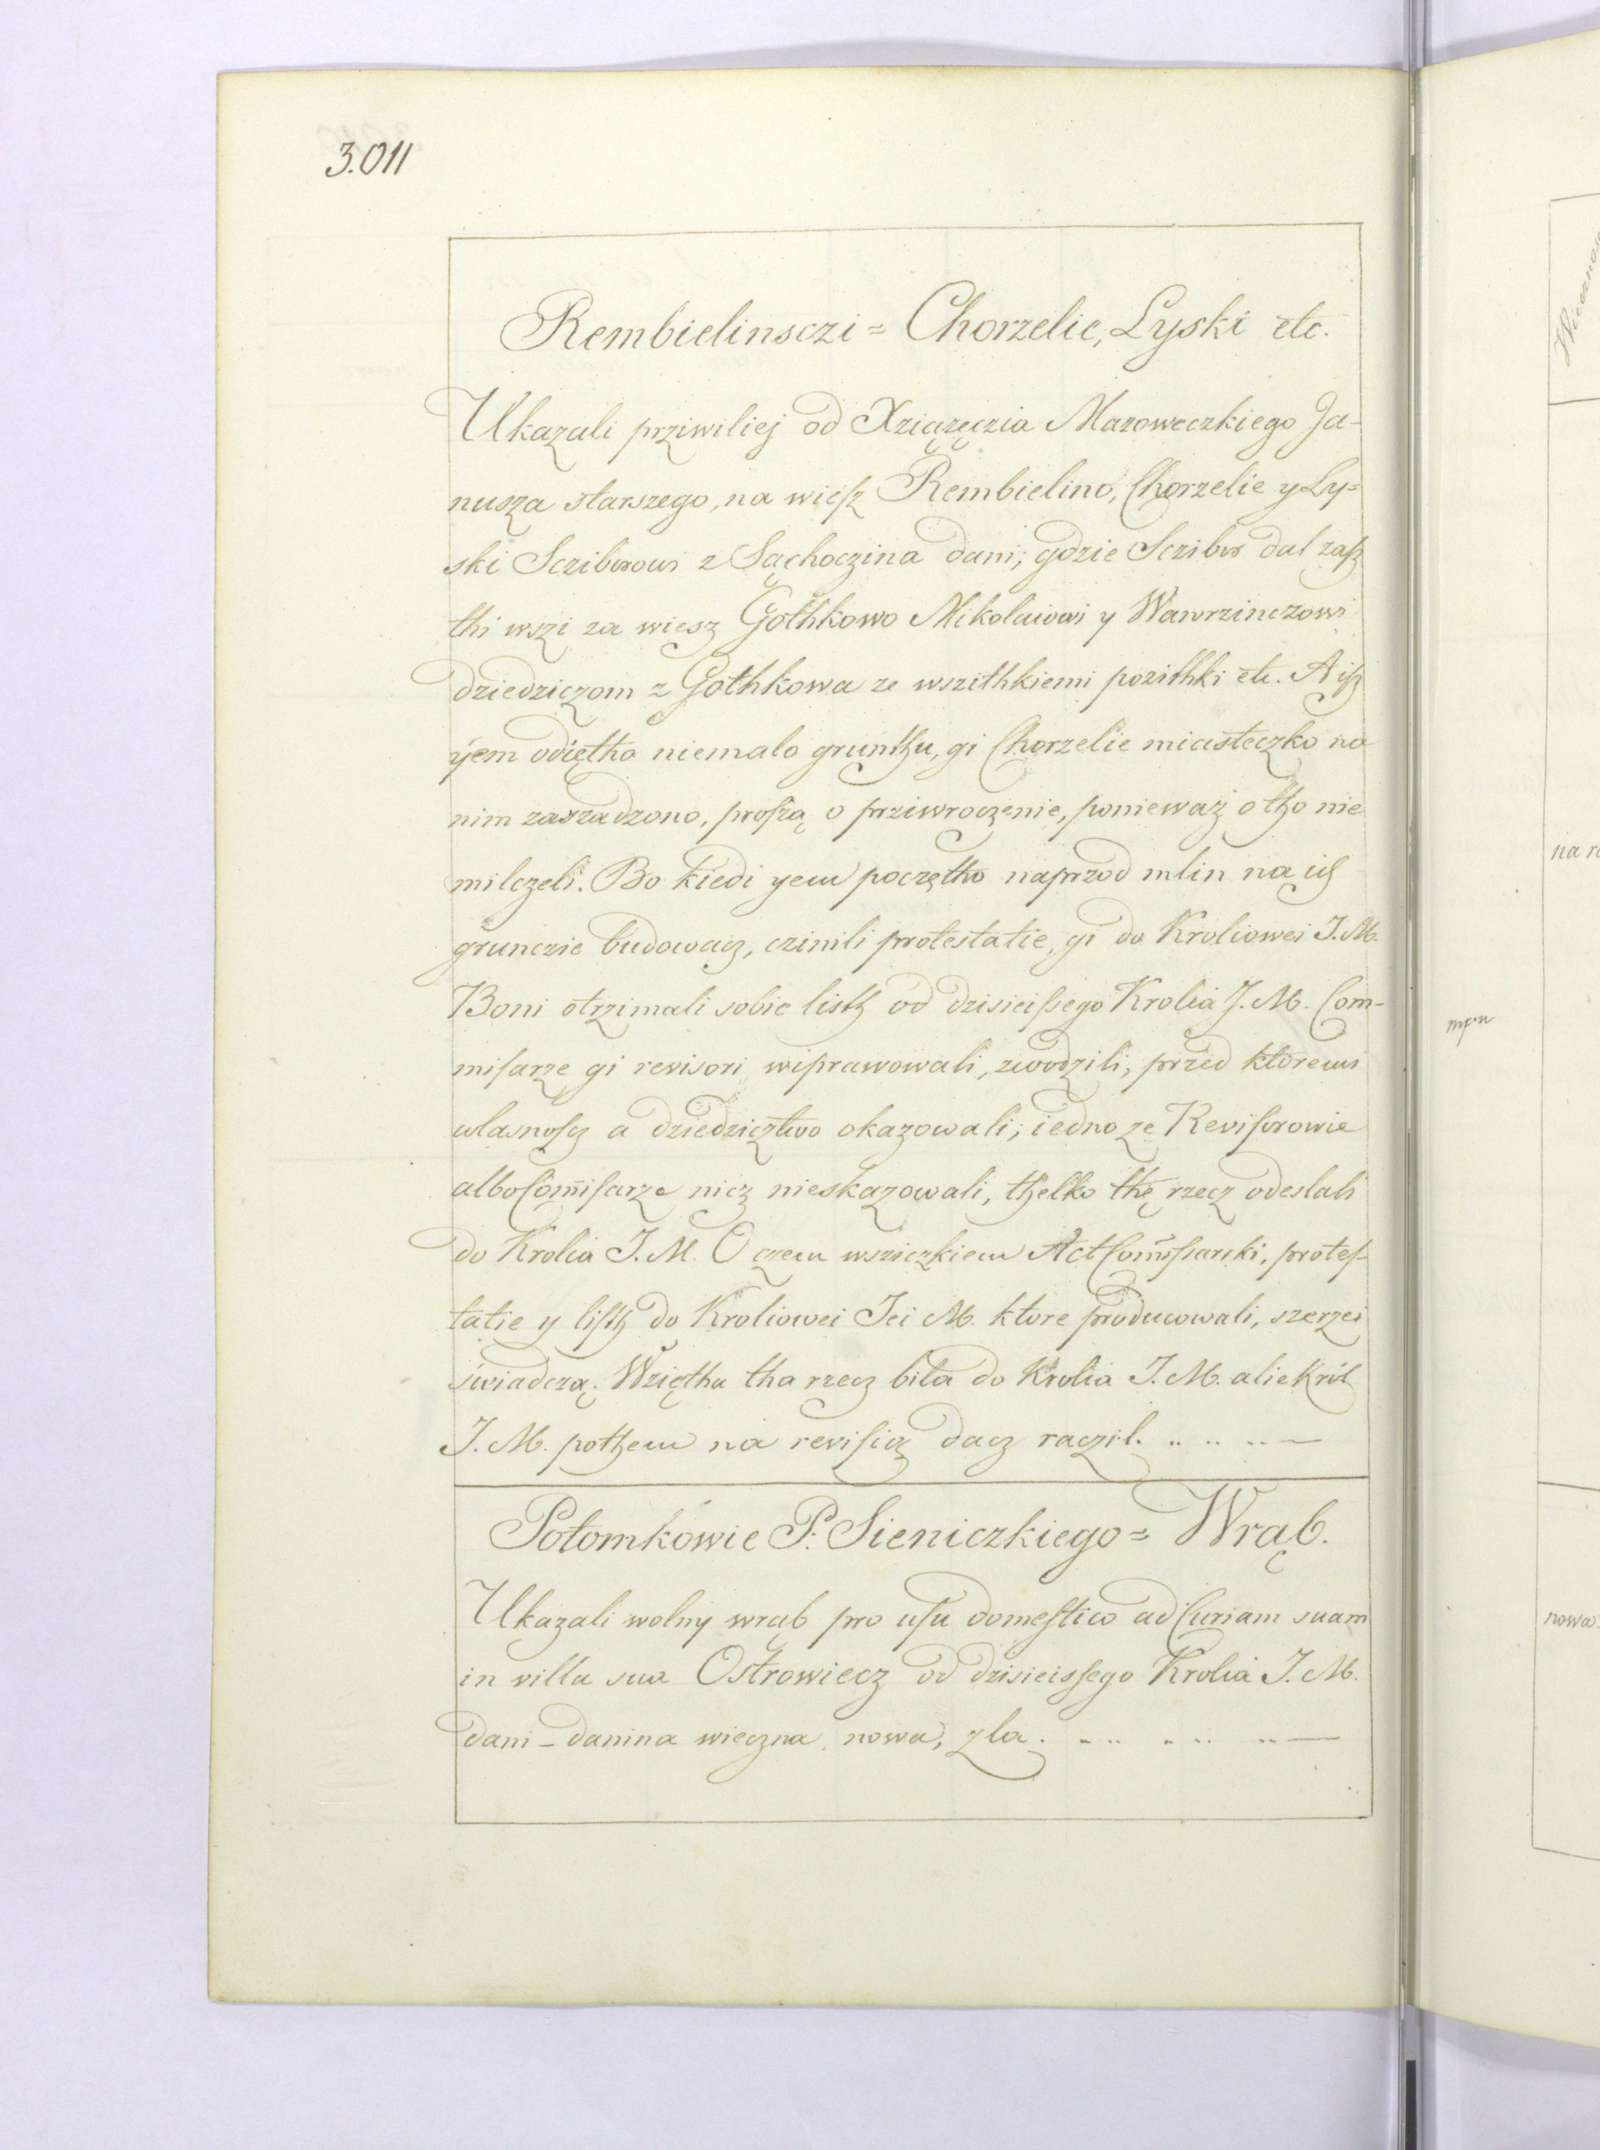 3.011
Rembielinsczi = Chorzelie, Lyski etc.
Ukazali prziwiliej od Xziązęczia Mazoweczkiego Ja-
nusza starszego, na wieſz Rembielino, Chorzelie y Ly=
ski Scziborowi z Sąchoczina dani; gdzie Sczibor dal zaſz
thi wszi za wiesz Gothkowo Mikolaiowi y Wawrzinczowi
dziedziczom z Gothkowa ze wszithkiemi pozithki etc. A iſz
yem odiętho niemalo grunthu, gi Chorzelie miasteczko na
nim zasadzono, proſzą o prziwroczenie, ponieważ o tho nie
milczeli. Bo kiedi yem poczętho naprzod mlin na ich
grunczie budowacz, czinili protestatie, gi do Kroliowei J. M.
Boni otrzimali sobie listh od dzisieiſsego Krolia J. M. Com-
miſarze gi revisori wiprawowali, zwodzili, przed ktoremi
wlasnoſcz a dziedzicztwo okazowali; iedno ze Reviſorowie
albo Com̄iſarze nicz nieskazowali, thelko thę rzecz odeslali
do Krolia J. M. O czem wsziczkiem Act Com̄iſsarski, proteſ-
tatie y liſth do Kroliowei Jei M. ktore producowali, szerzei
świadczą. Wziętha tha rzecz bila do Krolia J. M. alie Król
J. M. pothem na reviſią dacz raczil.
Potomkowie P. Sieniczkiego = Wrąb.
Ukazali wolny wrąb pro uſu domeſtico ad Curiam suam
in villa sua Ostrowiecz od dzisieisſego Krolia J. M.
dani – danina wieczna nowa, zla.
na
nowa